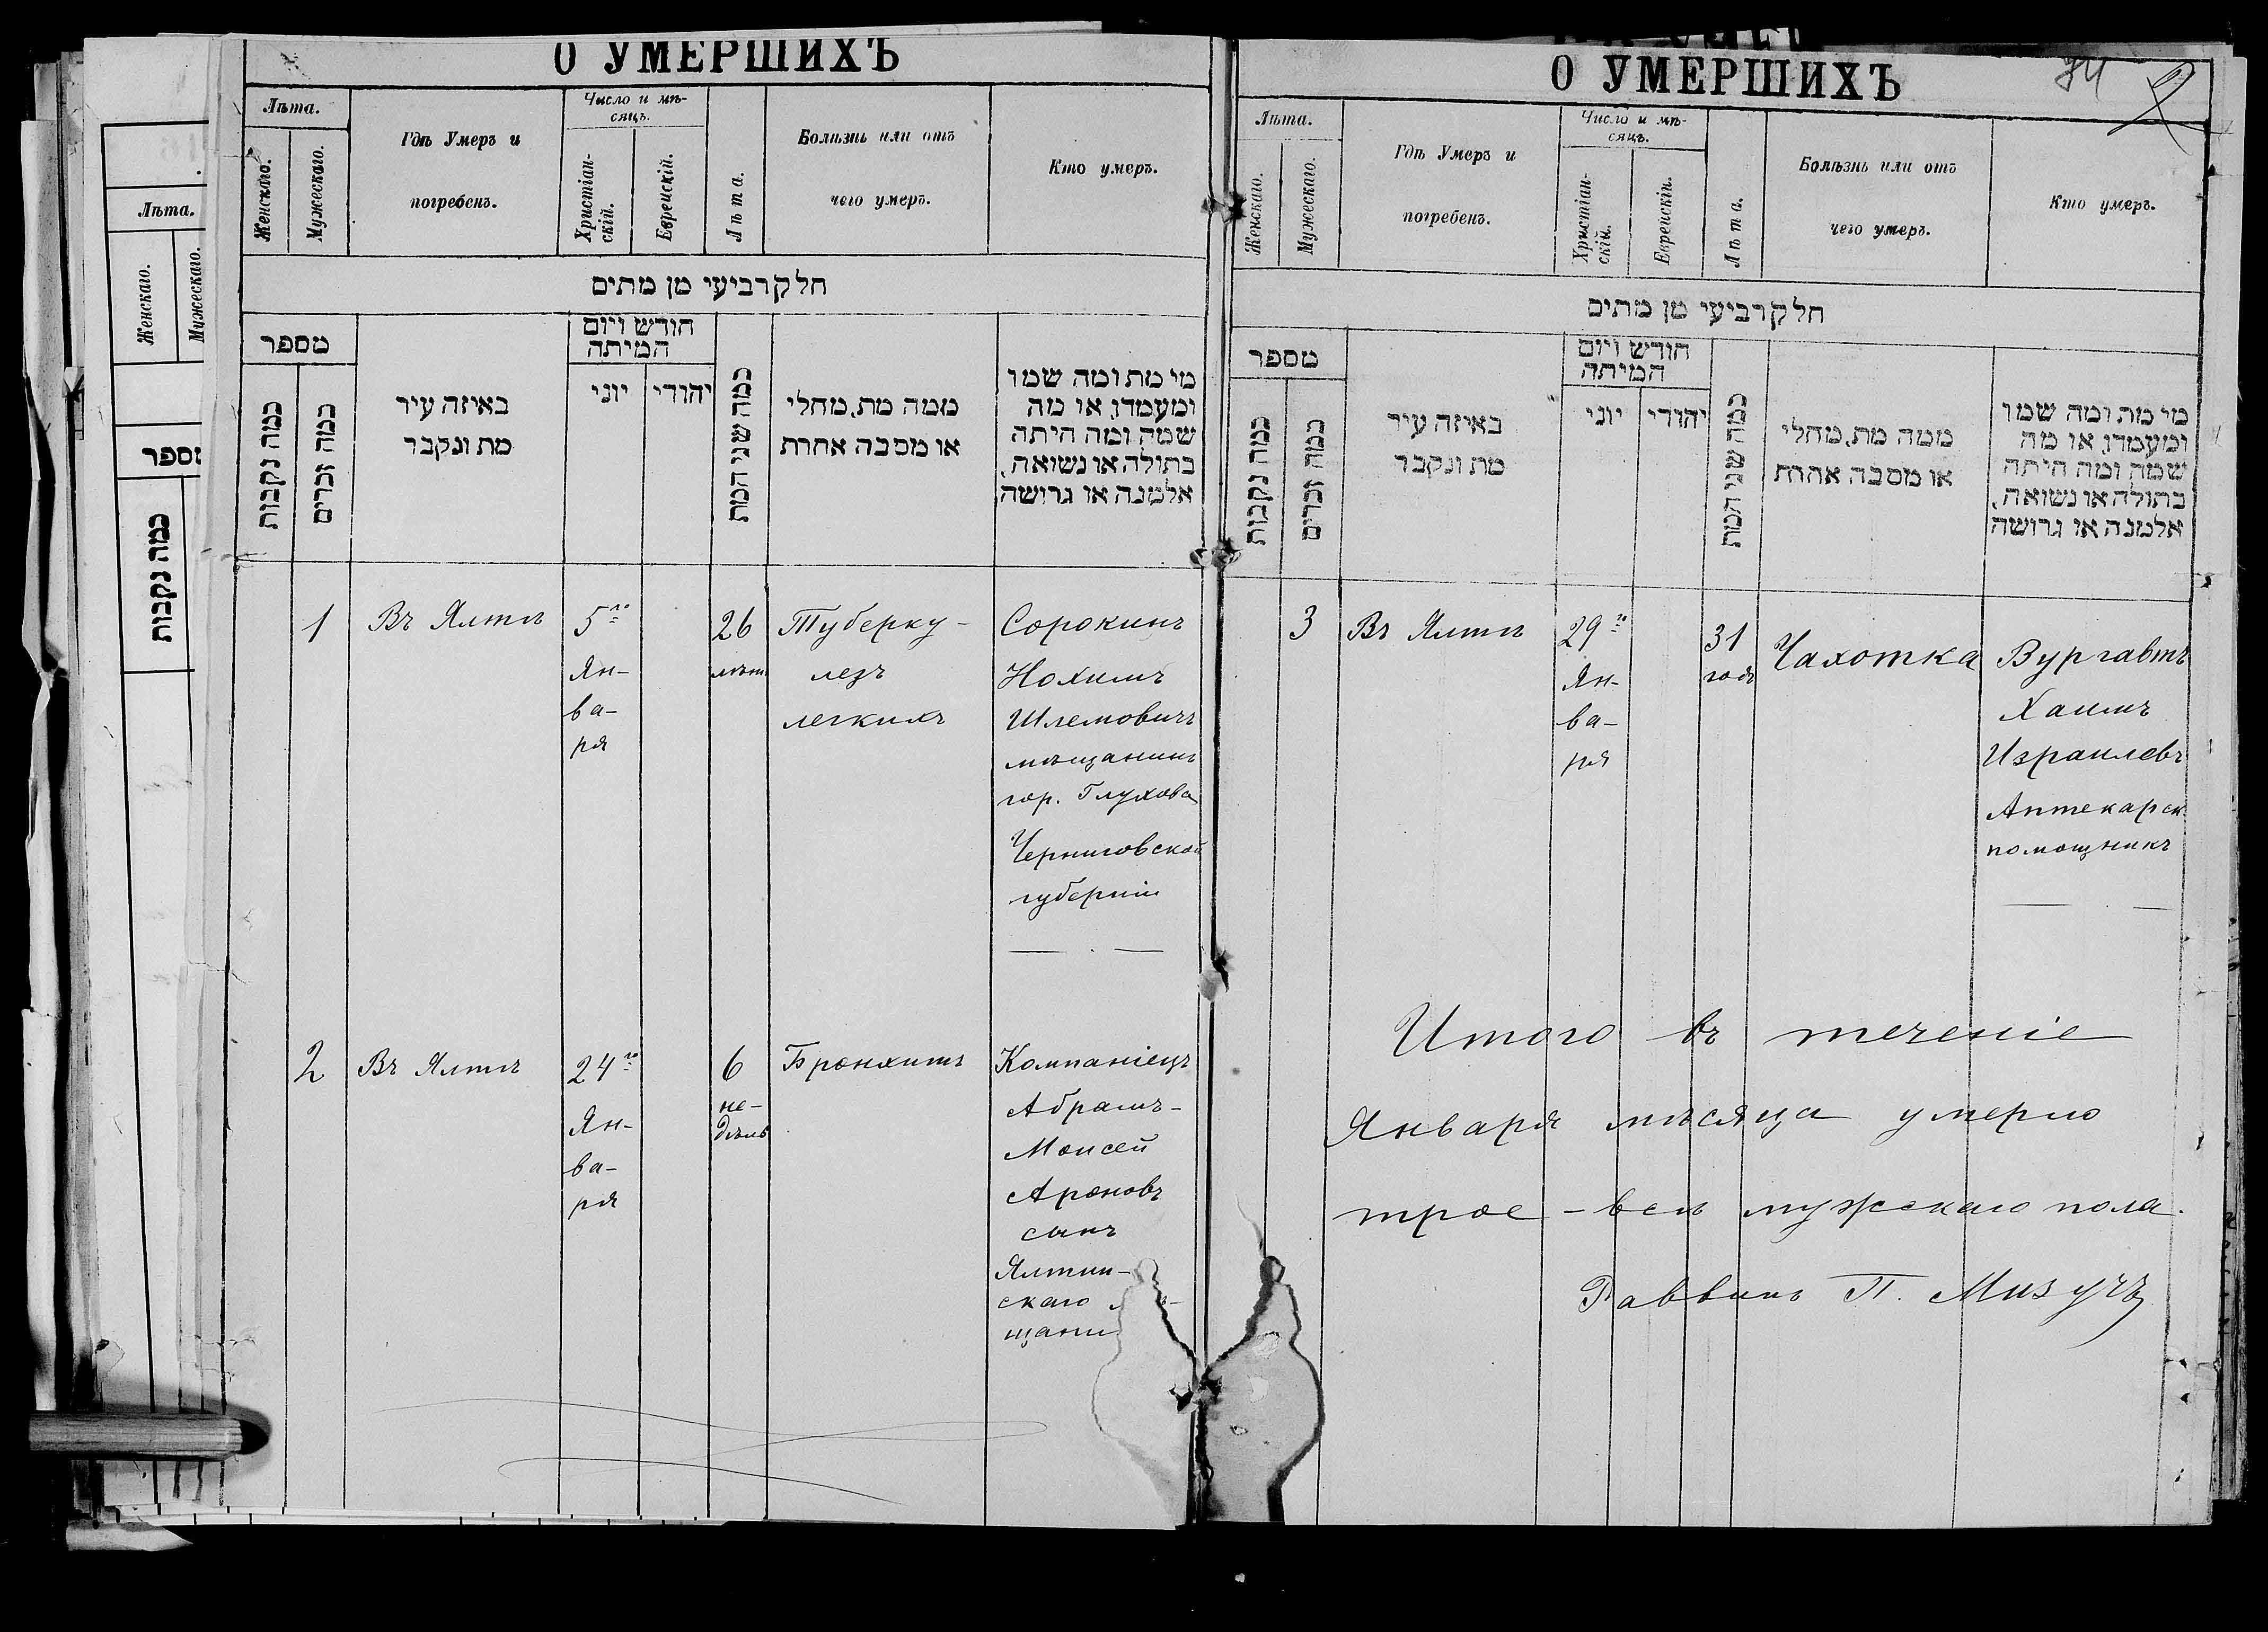 О УМЕРШИХЪ
Лѣта.
Женскаго.
Мужескаго.
Гдѣ Умеръ и
погребенъ.
Число и мѣ-
сяцъ.
Христіан-
скій.
Еврейскій.
Лѣта.
Болѣзнь или отъ
чего умеръ.
Кто умеръ.
חלק רביעי מן מתים
מספר
כמה נקבות
כמה זכרים
באיזה עיר
מת ונקבר
חודש ויום
המיתה
יוני
יהודי
כמה שני המת
ממה מת, מחלי
או מסבה אחרת
מי מת ומה שמו
ומעמדו, או מה
שמה ומה היתה
בתולה או נשואה,
אלמנה או גרושה
1
Въ Ялтѣ
5го
Ян-
ва-
ря
26
лѣтъ
Туберку-
лезъ
легкихъ
Сорокинъ
Нохимъ
Шлемовичъ
мѣщанинъ
гор. Глухова
Черниговской
губерніи
2
Въ Ялтѣ
24го
Ян-
ва-
ря
6
не-
дѣль
Бронхитъ
Компаніецъ
Абрамъ-
Моисей
Ароновъ
сынъ
Ялтин-
скаго
щани
О УМЕРШИХЪ
74
Лѣта.
Женскаго.
Мужескаго.
Гдѣ Умеръ и
погребенъ.
Число и мѣ-
сяцъ.
Христіан-
скій.
Еврейскій.
Лѣта.
Болѣзнь или отъ
чего умеръ.
Кто умеръ.
חלק רביעי מן מתים
מספר
כמה נקבות
כמה זכרים
באיזה עיר
מת ונקבר
חודש ויום
המיתה
יוני
יהודי
כמה שני המת
ממה מת, מחלי
או מסבה אחרת
מי מת ומה שמו
ומעמדו, או מה
שמה ומה היתה
בתולה או נשואה,
אלמנה או גרושה
3
Въ Ялтѣ
29го
Ян-
ва-
ря
31
годъ
Чахотка
Вургавтъ
Хаимъ
Израилевъ
Аптекарск
помощникъ
Итого въ теченіе
Января мѣсяца умерло
трое - всѣ мужскаго пола.
Раввинъ П. Мизучъ
Лѣта.
Женскаго.
Мужескаго.
מספר
כמה נקבות